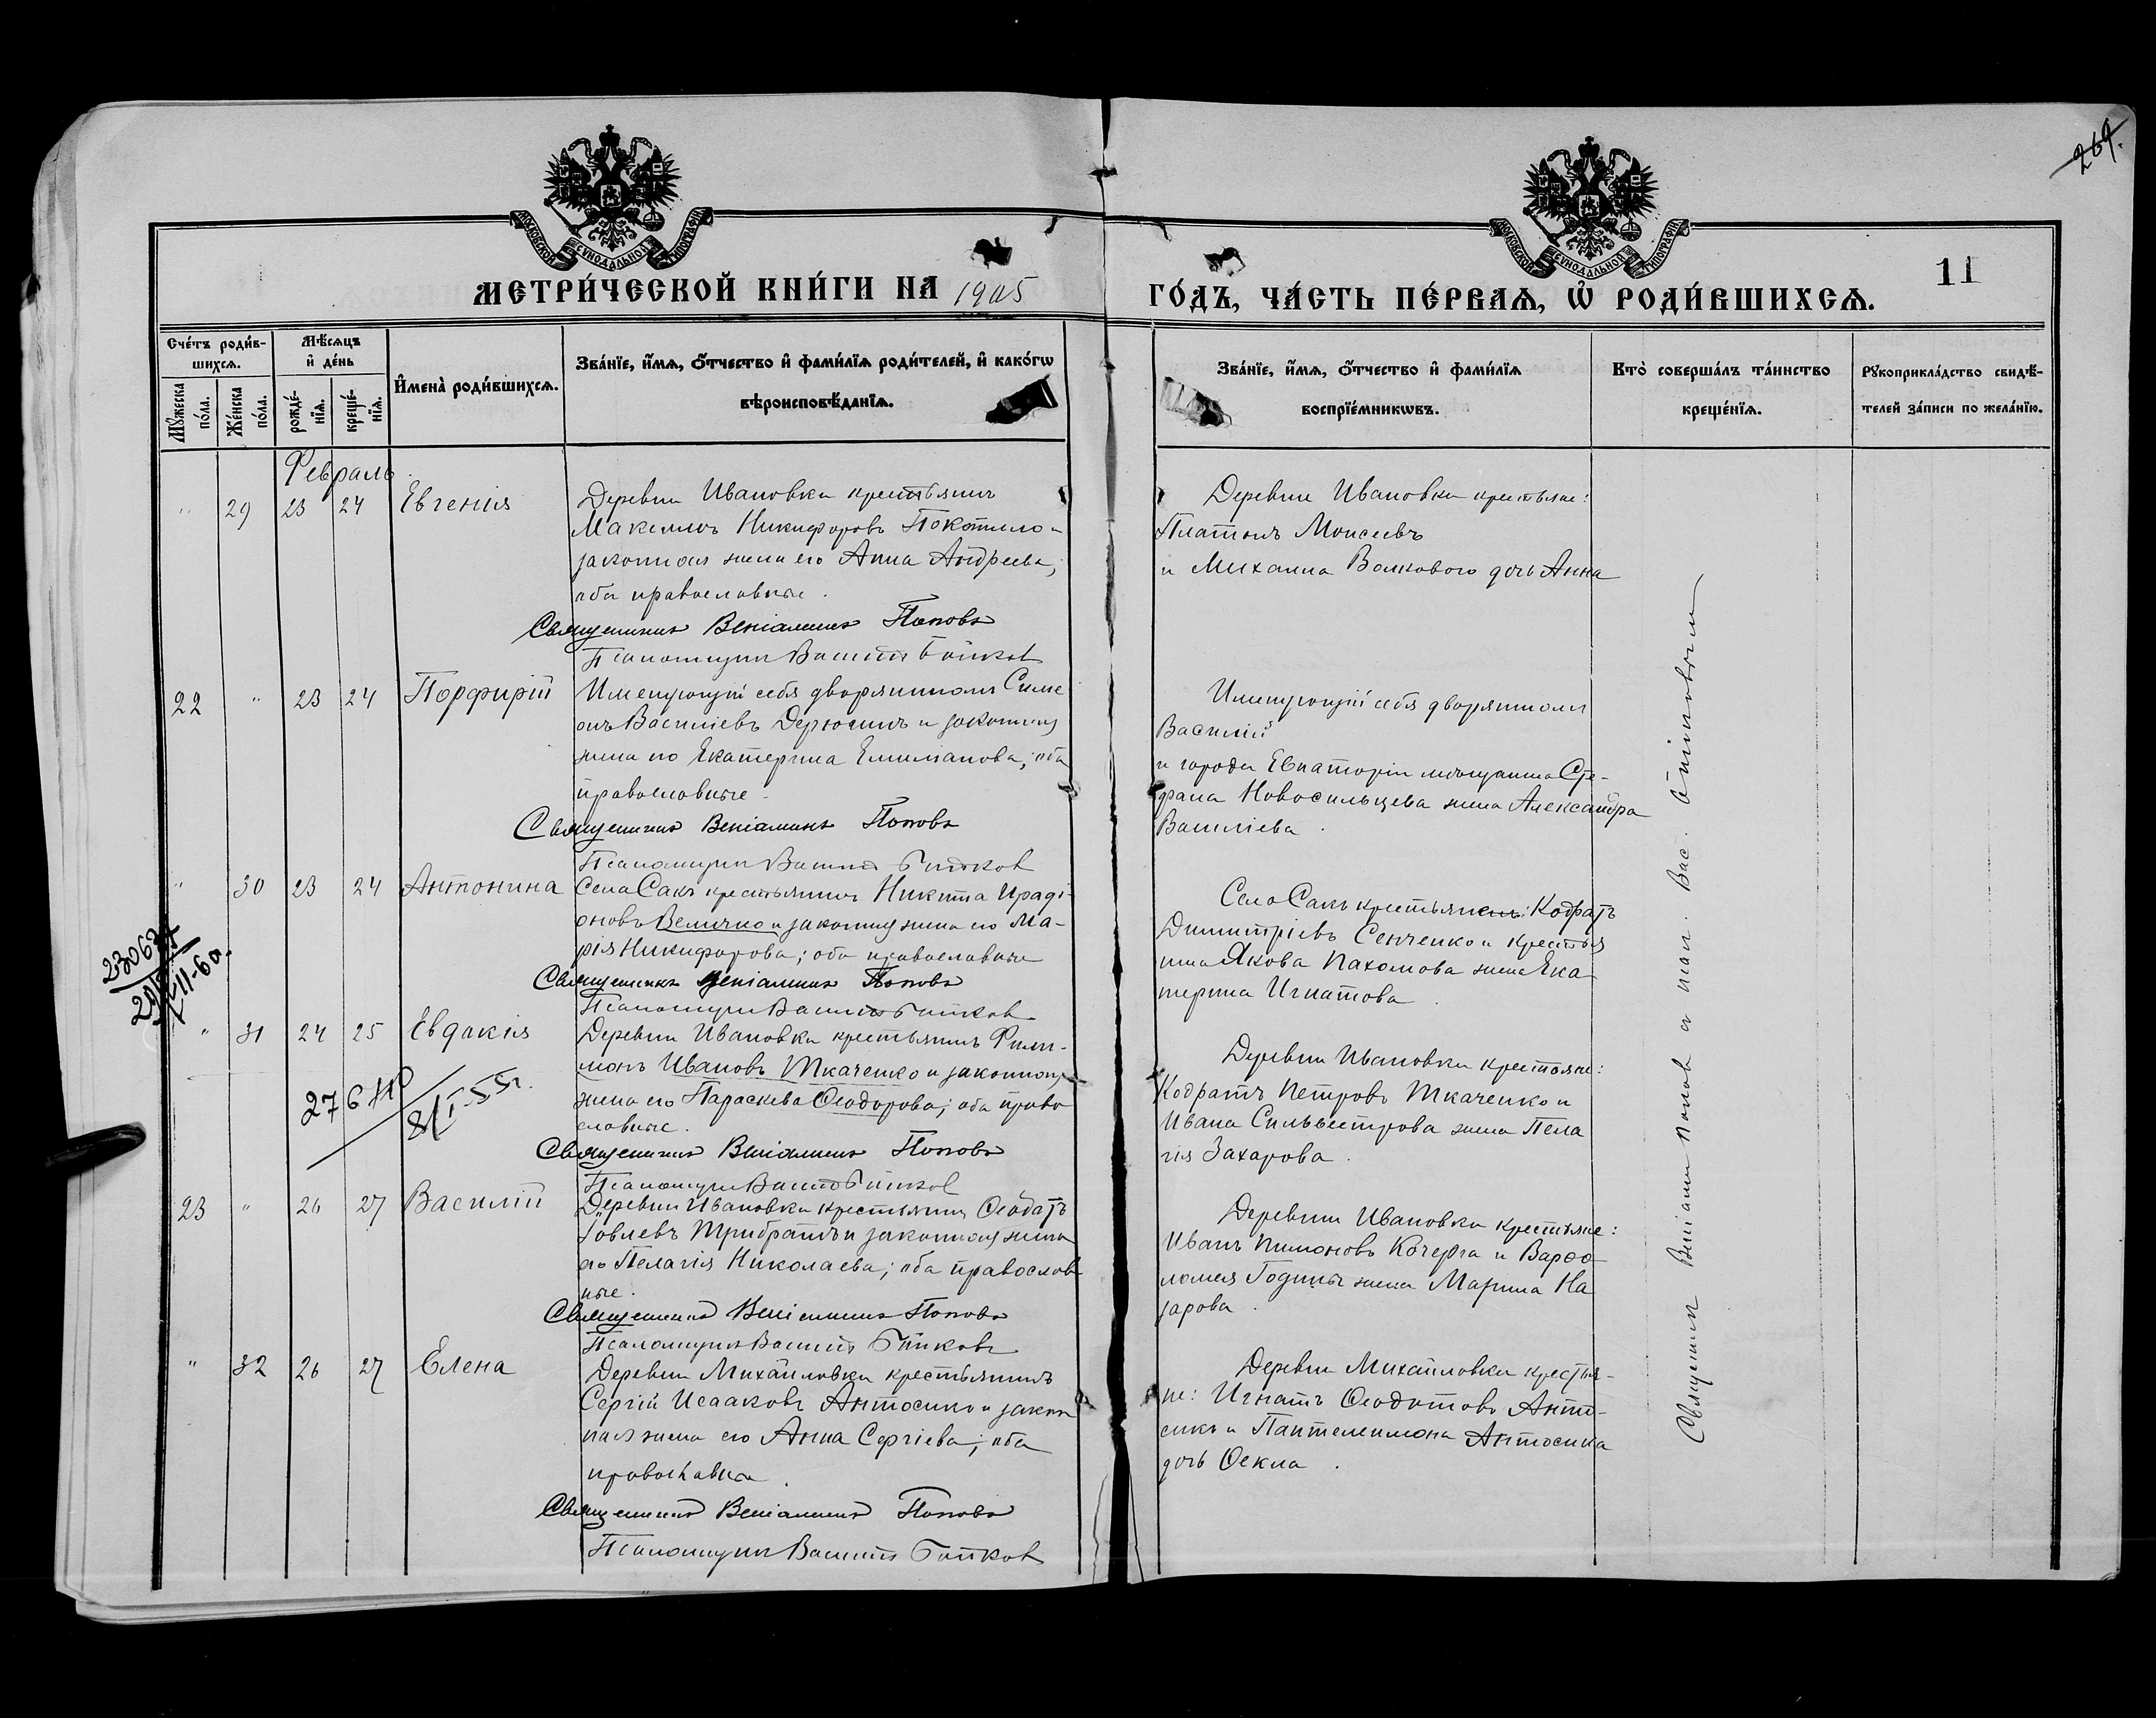 269.
МОСКОВСКОЙ СѴНОДАЛЬНОЙ ТИПОГРАФІИ
МОСКОВСКОЙ СѴНОДАЛЬНОЙ ТИПОГРАФІИ
МЕТРИ́ЧЕСКОЙ КНИ́ГИ НА 1905
ГО́ДЪ, ЧА́СТЬ ПЕ́РВАѦ, Ѡ҆ РОДИ́ВШИХСѦ.
11
Сче́тъ роди́в-
шихсѧ.
Мꙋ́жеска по́ла.
Же́нска по́ла.
Мѣ́сѧцъ и҆ де́нь
рожде́-нїѧ.
креще́-нїѧ.
И҆мена̀ роди́вшихсѧ.
Зва́нїе, и҆́мѧ, ѻ҆́тчество и҆ фами́лїѧ роди́телей, и҆ како́гѡ
вѣроисповѣ́данїѧ.
Зва́нїе, и҆́мѧ, ѻ҆́тчество и҆ фами́лїѧ
воспрїе́мникѡвъ.
Кто̀ соверша́лъ та́инство
креще́нїѧ.
Рꙋкоприкла́дство свидѣ́-
телей за́писи по жела́нїю.
Февраль
" 29 23 24 Евгенія
Деревни Ивановки крестьянинъ
Максимъ Никифоровъ Покотило и
законная жена его Анна Андреева,
оба православные.
Священникъ Веніаминъ Поповъ
Псаломщикъ Василій
Деревни Ивановки крестьяне:
Платонъ Моисеевъ
и Михаила Волкового дочь Анна
22 " 23 24 Порфирій
Именующій себя дворяниномъ Симе
онъ Василіевъ Дерюгинъ и законная
жена его Екатерина Емиліанова, оба
православные.
Священникъ Веніаминъ Поповъ
Псаломщикъ Василій
Именующій себя дворяниномъ
Василій
и города Евпаторіи мѣщанина Сте-
фана Новосильцева жена Александра
Василіева.
" 30 23 24 Антонина
Села Сакъ крестьянинъ Никита Иради-
оновъ Величко и законная жена его Ма-
рія Никифорова; оба православные
Священникъ Веніаминъ Поповъ
Псаломщикъ Василій
Село Сакъ крестьянинъ: Кодратъ
Димитріевъ Сенченко и крестья
нина Якова Пахомова жена Ека
терина Игнатова.
" 31 24 25 Евдакія
Деревни Ивановки крестьянинъ Фили-
монъ Ивановъ Ткаченко и законная
жена его Параскева Ѳеодорова; оба право
славные.
Священникъ Веніаминъ Поповъ
Псаломщикъ Василій
Деревни Ивановки крестьяне:
Кодратъ Петровъ Ткаченко и
Ивана Сильвестрова жена Пела
гія Захарова.
23 " 26 27 Василій
Деревни Ивановки крестьянинъ Ѳеодотъ
Іовлевъ Трибратъ и законная жена
его Пелагія Николаева; оба православ
ные.
Священникъ Веніаминъ Поповъ
Псаломщикъ Василій
Деревни Ивановки крестьяне:
Иванъ Пимоновъ Кочерга и Варѳо
ломея Годины жена Марина На
зарова.
" 32 26 27 Елена
Деревни Михайловки крестьянинъ
Сергій Исааковъ Антосикъ и закон
ная жена его Анна Сергіева; оба
православные.
Священникъ Веніаминъ Поповъ
Псаломщикъ Василій
Деревни Михайловки крестья-
не: Игнатъ Ѳеодотовъ Анто-
сикъ и Пантелеимона Антосика
дочь Ѳекла.
Священникъ Веніаминъ Поповъ с псал. Вас.